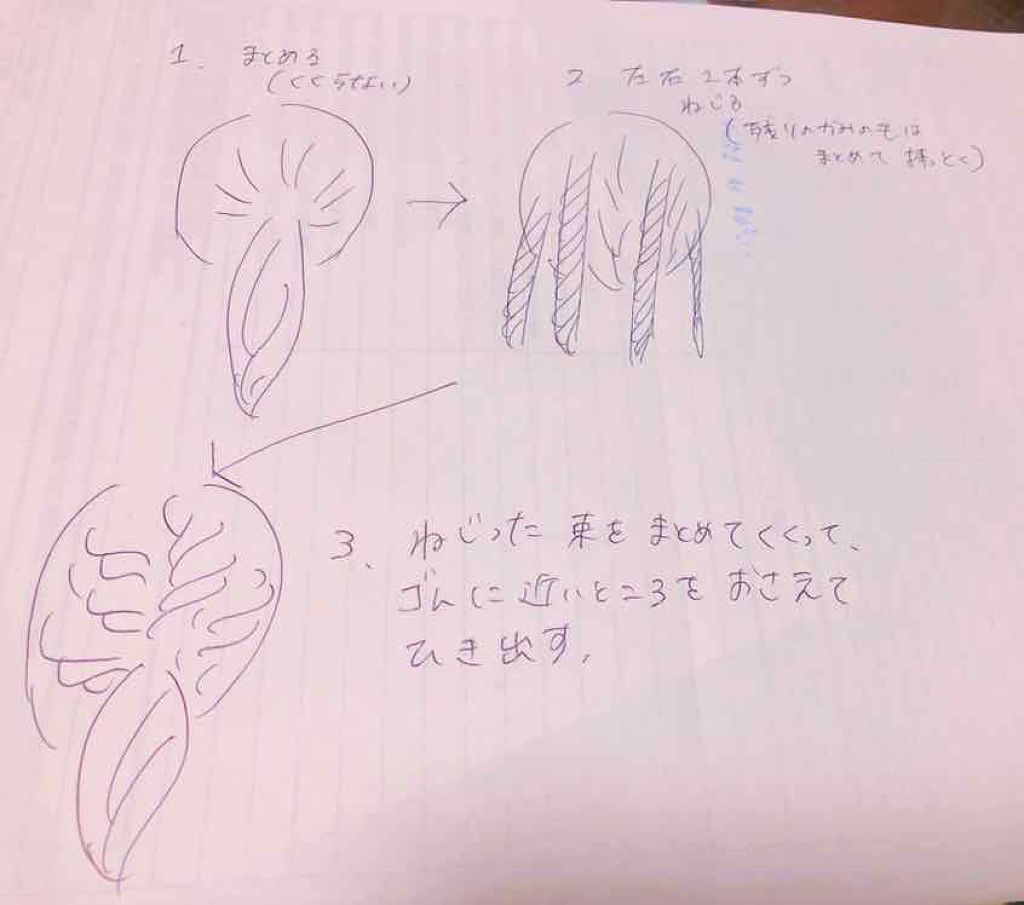 1. まとめる
(くくらない)
2. 左右2本ずつ
ねじる
(残りのかみの毛は
まとめて持っとく)
3、ねじった束をまとめてくくって、
ゴムに近いところをおさえて
ひき出す。